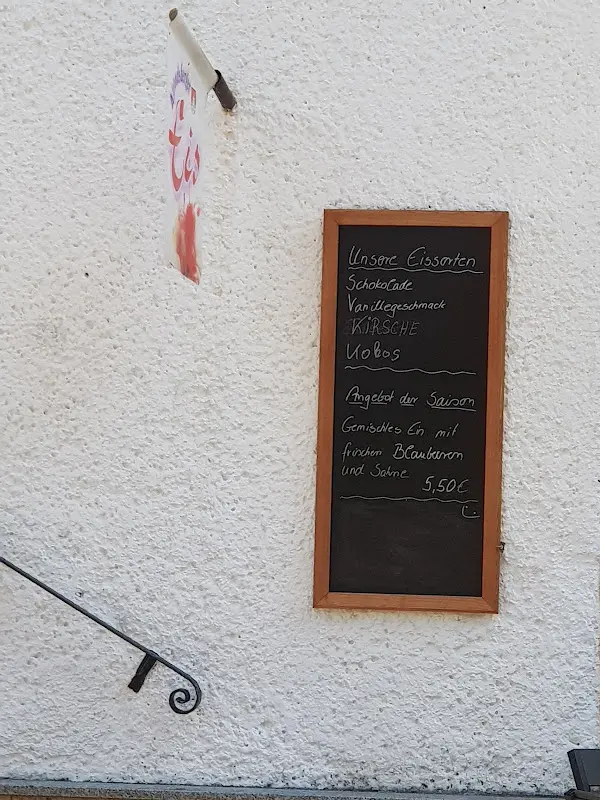 Eis
Unsere Eissorten
Schokolade
Vanillegeschmack
KIRSCHE
Kokos
Angebot der Saison
Gemischtes Eis mit
frischen Blaubeeren
und Sahne
5,50€